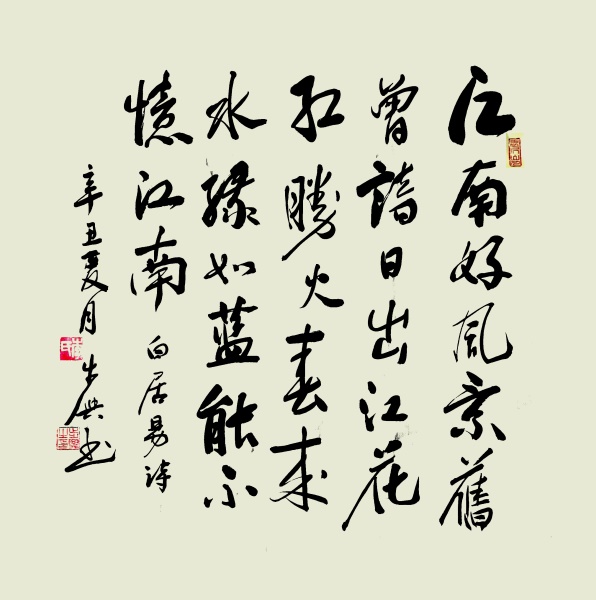 江南好風景舊
曾諳日出江花
紅勝火春來
水綠如藍能不
憶江南 白居易詩
辛丑夏月 書